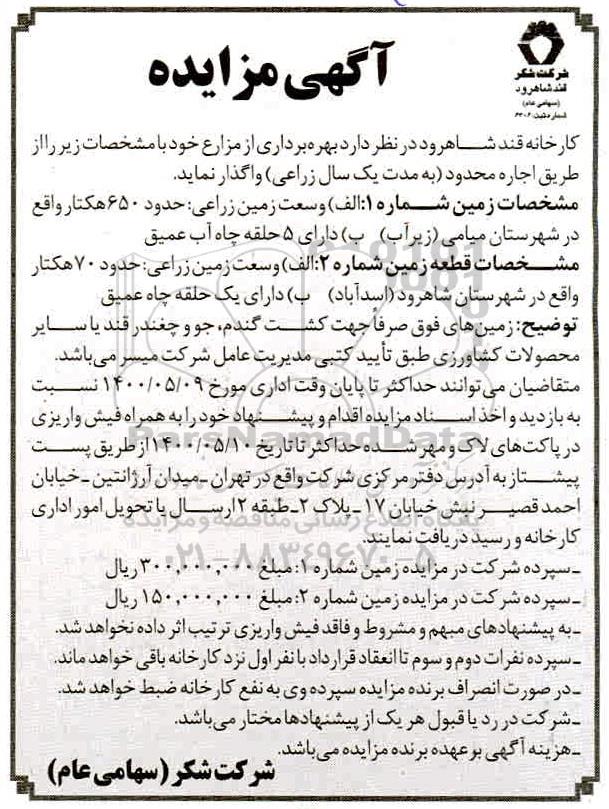 شرکت شکر
قند شاهرود
(سهامی عام)
شماره ثبت: ۶۳۰۶
آگهی مزایده
کارخانه قند شاهرود در نظر دارد بهره‌برداری از مزارع خود با مشخصات زیر را از
طریق اجاره محدود (به مدت یک سال زراعی) واگذار نماید.
مشخصات زمین شماره ۱: الف) وسعت زمین زراعی: حدود ۶۵۰ هکتار واقع
در شهرستان میامی (زیرآب) ب) دارای ۵ حلقه چاه آب عمیق
مشخصات قطعه زمین شماره ۲: الف) وسعت زمین زراعی: حدود ۷۰ هکتار
واقع در شهرستان شاهرود (اسدآباد) ب) دارای یک حلقه چاه عمیق
توضیح: زمین‌های فوق صرفاً جهت کشت گندم، جو و چغندر قند یا سایر
محصولات کشاورزی طبق تأیید کتبی مدیریت عامل شرکت میسر می‌باشد.
متقاضیان می‌توانند حداکثر تا پایان وقت اداری مورخ ۱۴۰۰/۰۵/۰۹ نسبت
به بازدید و اخذ اسناد مزایده اقدام و پیشنهاد خود را به همراه فیش واریزی
در پاکت‌های لاک و مهر شده حداکثر تا تاریخ ۱۴۰۰/۰۵/۱۰ از طریق پست
پیشتاز به آدرس دفتر مرکزی شرکت واقع در تهران ـ میدان آرژانتین ـ خیابان
احمد قصیر نبش خیابان ۱۷ ـ پلاک ۲ ـ طبقه ۲ ارسال یا تحویل امور اداری
کارخانه و رسید دریافت نمایند.
ـ سپرده شرکت در مزایده زمین شماره ۱: مبلغ ۳۰۰,۰۰۰,۰۰۰ ریال
ـ سپرده شرکت در مزایده زمین شماره ۲: مبلغ ۱۵۰,۰۰۰,۰۰۰ ریال
ـ به پیشنهادهای مبهم و مشروط و فاقد فیش واریزی ترتیب اثر داده نخواهد شد.
ـ سپرده نفرات دوم و سوم تا انعقاد قرارداد با نفر اول نزد کارخانه باقی خواهد ماند.
ـ در صورت انصراف برنده مزایده سپرده وی به نفع کارخانه ضبط خواهد شد.
ـ شرکت در رد یا قبول هر یک از پیشنهادها مختار می‌باشد.
ـ هزینه آگهی بر عهده برنده مزایده می‌باشد.
شرکت شکر (سهامی عام)
ParsNamadData
پایگاه اطلاع رسانی مناقصه و مزایده
۰۲۱-۸۸۳۴۹۶۷۰-۵